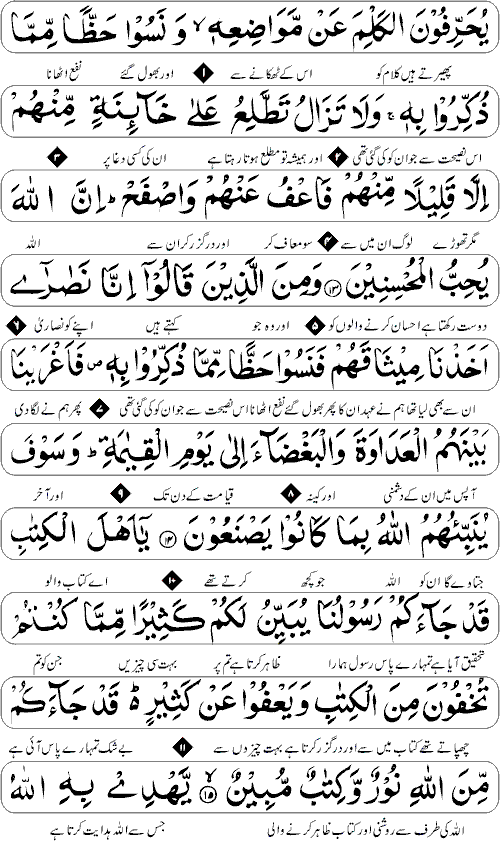 يُحَرِّفُوۡنَ الۡكَلِمَ عَنۡ مَّوَاضِعِهٖ ۙ وَ نَسُوۡا حَظًّا مِّمَّا
پھیرتے ہیں کلام کو اس کے ٹھکانے سے ۱ اور بھول گئے نفع اٹھانا
ذُكِّرُوۡا بِهٖ ۚ وَلَا تَزَالُ تَطَّلِعُ عَلٰى خَآئِنَةٍ مِّنۡهُمۡ
اس نصیحت سے جو ان کو کی گئی تھی ۲ اور ہمیشہ تو مطلع ہوتا رہتا ہے ان کی کسی دغا پر ۳
اِلَّا قَلِيۡلًا مِّنۡهُمۡ فَاعۡفُ عَنۡهُمۡ وَاصۡفَحۡ ؕ اِنَّ اللّٰهَ
مگر تھوڑے لوگ ان میں سے ۴ سو معاف کر اور درگزر کر ان سے اللہ
يُحِبُّ الۡمُحۡسِنِيۡنَ ﴿۱۳﴾ وَمِنَ الَّذِيۡنَ قَالُوۡۤا اِنَّا نَصٰرٰٓى
دوست رکھتا ہے احسان کرنے والوں کو ۵ اور وہ جو کہتے ہیں اپنے کو نصاریٰ ۶
اَخَذۡنَا مِيۡثَاقَهُمۡ فَنَسُوۡا حَظًّا مِّمَّا ذُكِّرُوۡا بِهٖ ص فَاَغۡرَيۡنَا
ان سے بھی لیا تھا ہم نے عہد ان کا پھر بھول گئے نفع اٹھانا اس نصیحت سے جو ان کو کی گئی تھی ۷ پھر ہم نے لگا دی
بَيۡنَهُمُ الۡعَدَاوَةَ وَالۡبَغۡضَآءَ اِلٰى يَوۡمِ الۡقِيٰمَةِ ؕ وَسَوۡفَ
آپس میں ان کے دشمنی اور کینہ ۸ قیامت کے دن تک ۹ اور آخر
يُنَبِّئُهُمُ اللّٰهُ بِمَا كَانُوۡا يَصۡنَعُوۡنَ ﴿۱۴﴾ يٰۤاَهۡلَ الۡكِتٰبِ
جتا دے گا ان کو اللہ جو کچھ کرتے تھے ۱۰ اے کتاب والو
قَدۡ جَآءَكُمۡ رَسُوۡلُنَا يُبَيِّنُ لَكُمۡ كَثِيۡرًا مِّمَّا كُنۡتُمۡ
تحقیق آیا ہے تمہارے پاس رسول ہمارا ظاہر کرتا ہے تم پر بہت سی چیزیں جن کو تم
تُخۡفُوۡنَ مِنَ الۡكِتٰبِ وَيَعۡفُوۡا عَنۡ كَثِيۡرٍ ؕ قَدۡ جَآءَكُمۡ
چھپاتے تھے کتاب میں سے اور درگزر کرتا ہے بہت چیزوں سے ۱۱ بے شک تمہارے پاس آئی ہے
مِّنَ اللّٰهِ نُوۡرٌ وَّكِتٰبٌ مُّبِيۡنٌ ۙ ﴿۱۵﴾ يَّهۡدِىۡ بِهِ اللّٰهُ
اللہ کی طرف سے روشنی اور کتاب ظاہر کرنے والی جس سے اللہ ہدایت کرتا ہے